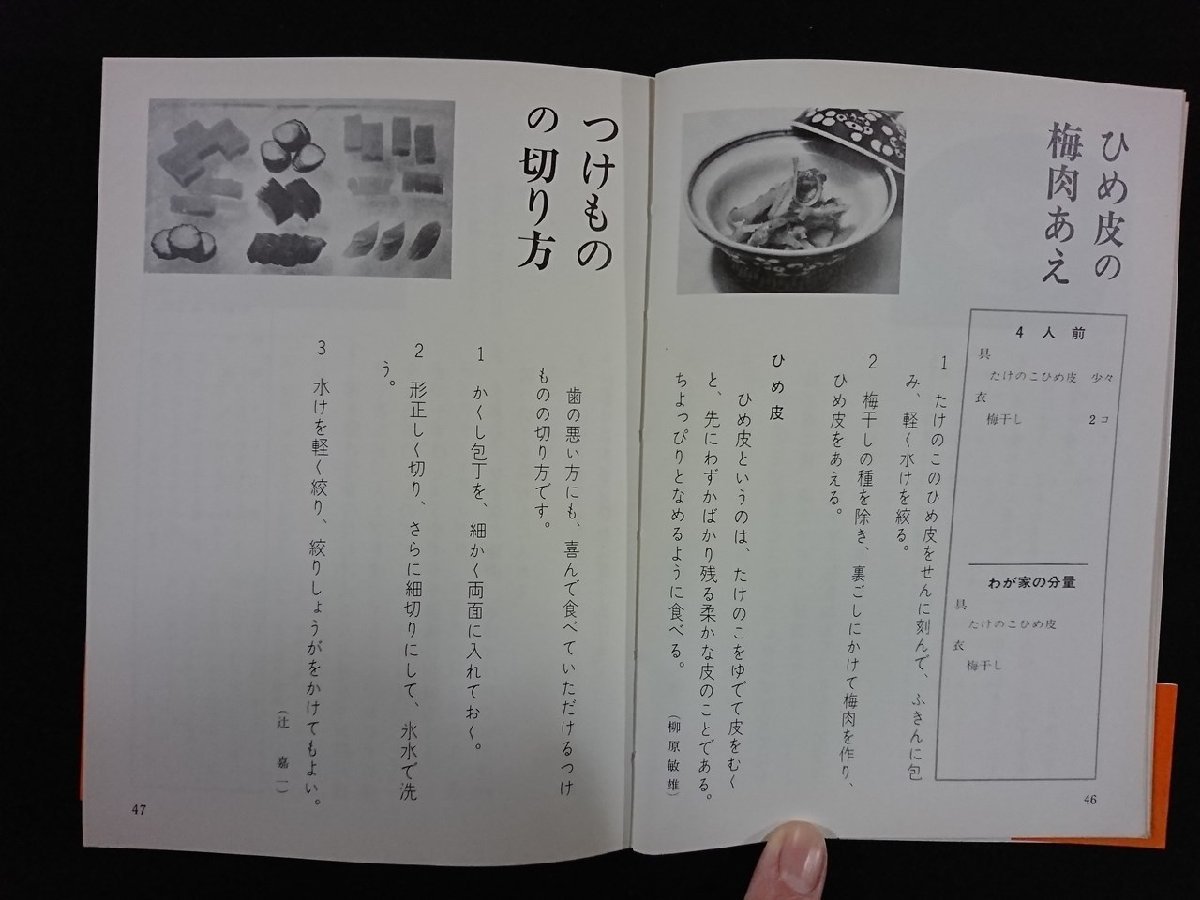 ひめ皮の
梅肉あえ
4人前
具
たけのこひめ皮 少々
衣
梅干し 2コ
わが家の分量
具
たけのこひめ皮
衣
梅干し
1 たけのこのひめ皮をせんに刻んで、ふきんに包
み、軽く水けを絞る。
2 梅干しの種を除き、裏ごしにかけて梅肉を作り、
ひめ皮をあえる。
ひめ皮
ひめ皮というのは、たけのこをゆでて皮をむく
と、先にわずかばかり残る柔かな皮のことである。
ちょっぴりとなめるように食べる。
(柳原敏雄)
46
つけもの
の切り方
歯の悪い方にも、喜んで食べていただけるつけ
ものの切り方です。
1 かくし包丁を、細かく両面に入れておく。
2 形正しく切り、さらに細切りにして、氷水で洗
う。
3 水けを軽く絞り、絞りしょうがをかけてもよい。
(辻嘉一)
47